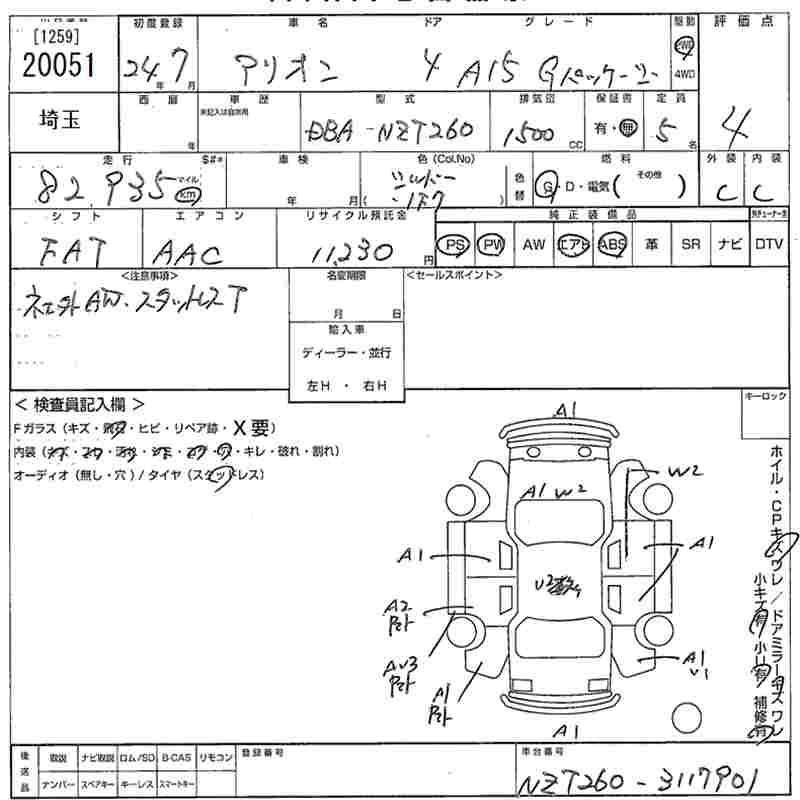 [1259]
20051
初度登録 車名 ドア グレード 駆動 評価点
24年7月 アリオン 4 A15 Gパッケージ 2WD 4WD
埼玉 西暦 年 車歴 未記入は自家用 型式 排気量 保証書 定員
DBA-NZT260 1500cc 有・無 5名 4
走行 S#* 車検 色(Col.No) 燃料 外装 内装
82,935 マイル km 年 月 シルバー ( 1F7 ) 色替 G・D・電気( その他 ) C C
シフト エアコン リサイクル預託金 純正装備品
FAT AAC 11,230円 PS PW AW エアB ABS 革 SR ナビ DTV
<注意事項> 名変期限 <セールスポイント>
AW・スタッドレスT
月 日
輸入車
ディーラー・並行
左H ・ 右H
< 検査員記入欄 >
キーロック
Fガラス(キズ・飛石・ヒビ・リペア跡・X要)
内装(・キレ・破れ・割れ)
オーディオ(無し・穴)/タイヤ(スタッドレス)
A1
W2
A1 W2
A1
A1
U2
A2
AU3
A1
A1
U1
A1
ホイル・CPキズワレ/ドアミラーキズワレ
小キズ有 小U有 補修有
後送品 取説 ナビ取説 ロム/SD B-CAS リモコン 登録番号 車台番号
ナンバー スペアキー キーレス スマートキー NZT260-3117901